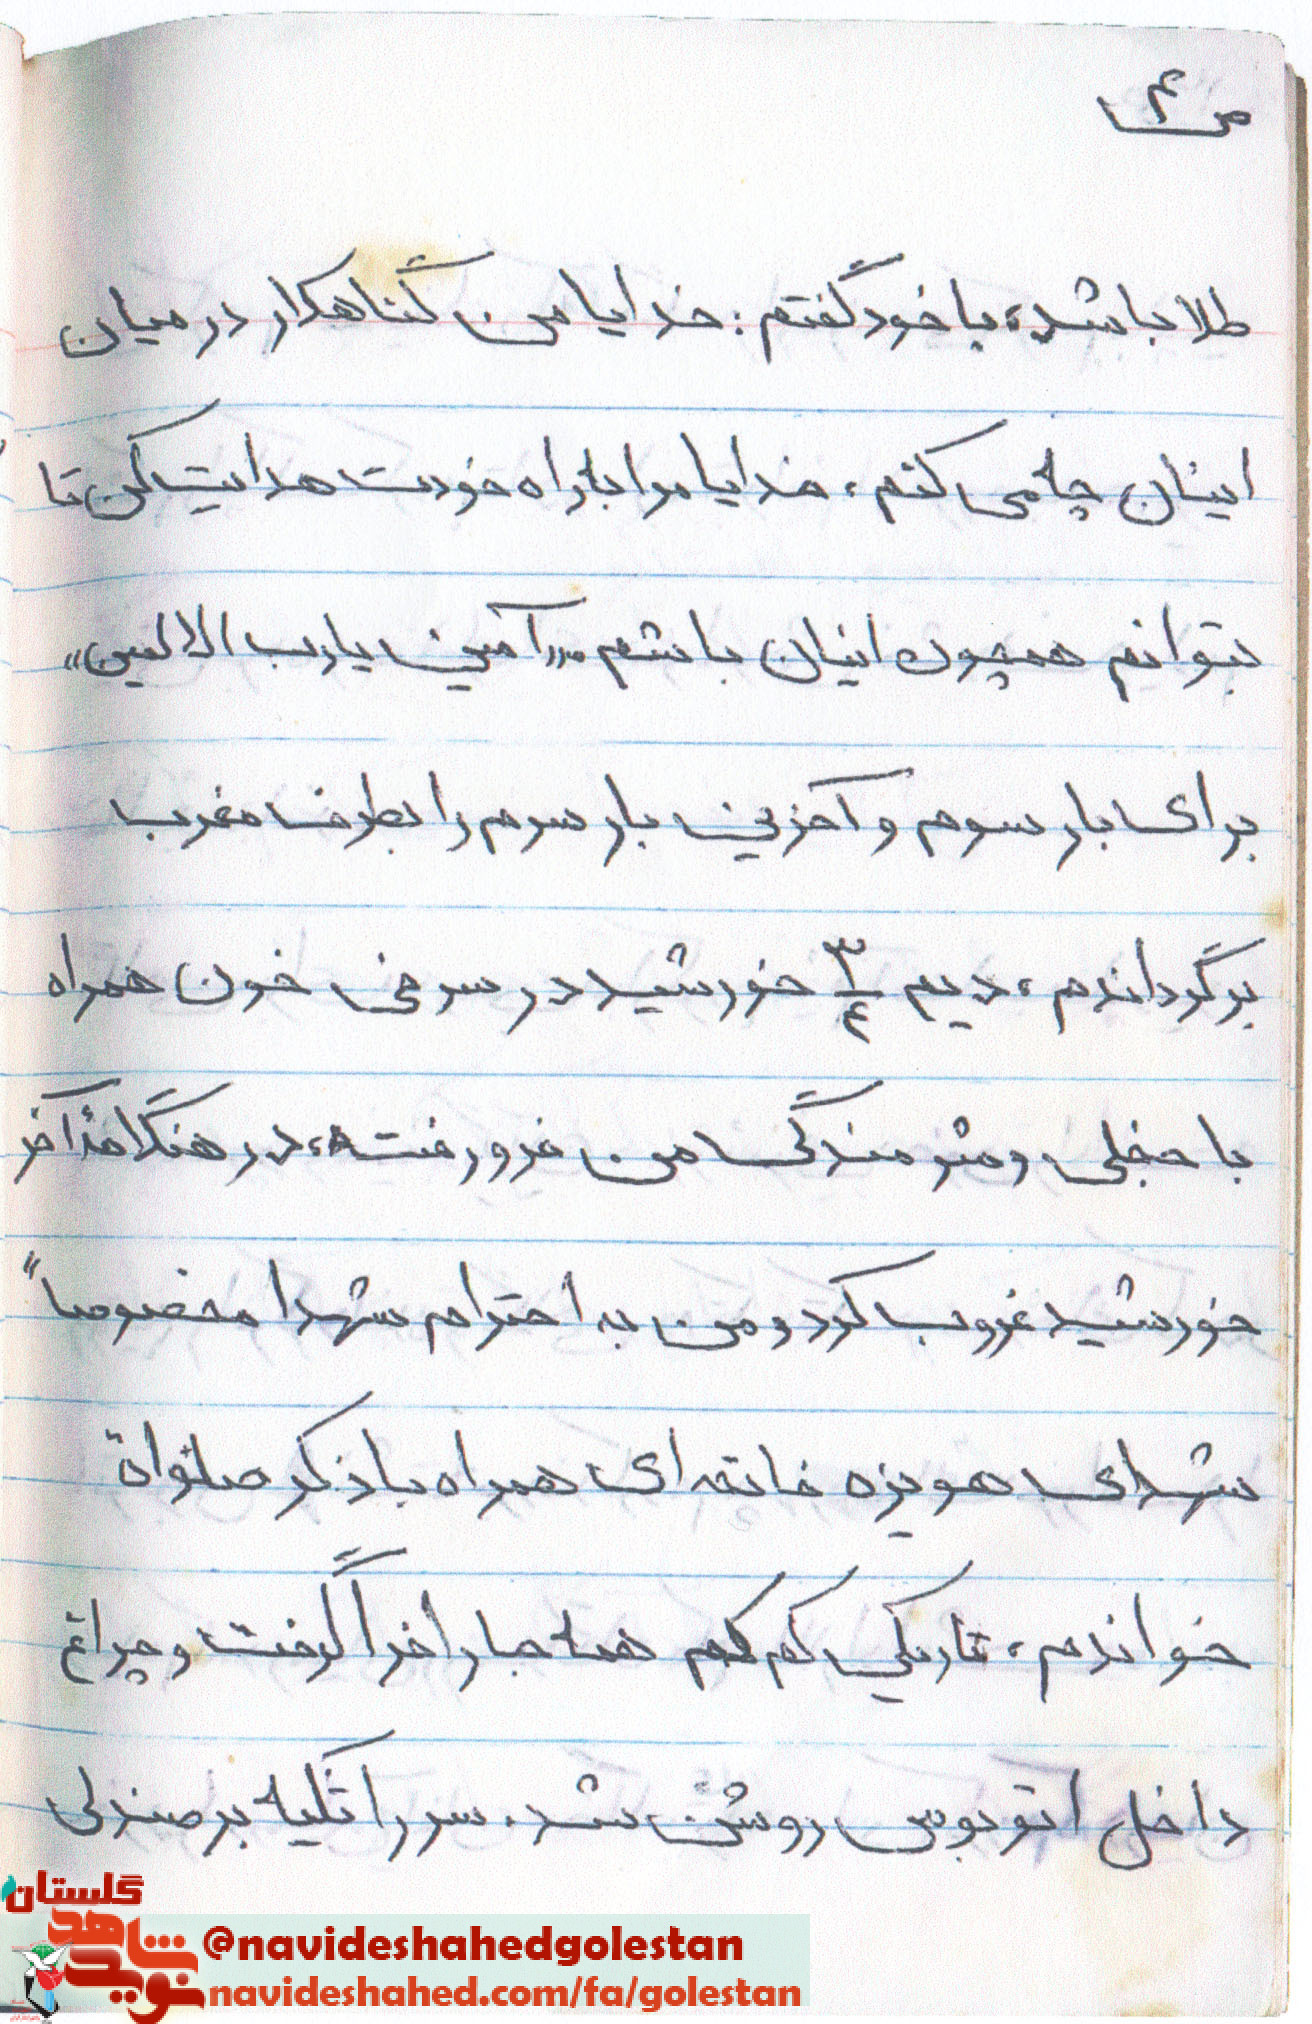 ص ۴
طلا باشد، با خود گفتم: خدایا من گناهکار در میان
اینان چه می کنم، خدایا مرا به راه خودت هدایت کن تا
بتوانم همچون اینان باشم «آمین یا رب الالمین»
برای بار سوم و آخرین بار سرم را بطرف مغرب
برگرداندم، دیم ۳/۴ خورشید در سرخی خون همراه
با خجلی و شرمندگی من فرو رفته، در هنگامه آخر
خورشید غروب کرد و من به احترام شهدا مخصوصاً
شهدای هویزه فاتحه ای همراه با ذکر صلواة
خواندم، تاریکی کم کم همه جا را فرا گرفت و چراغ
داخل اتوبوس روشن شد، سر را تکیه بر صندلی
گلستان
نوید شاهد
@navideshahedgolestan
navideshahed.com/fa/golestan